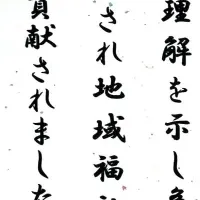 理解を示し
され地域福
献されました